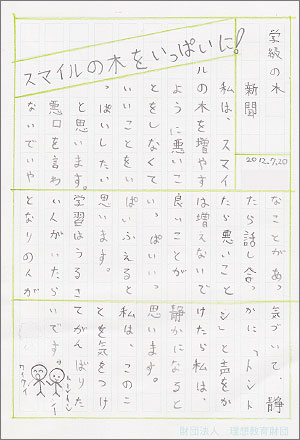 学級の木
新聞
2012.7.20
スマイルの木をいっぱいに!
私は、スマイ
ルの木を増やす
ように悪いこ
とをしなくて
いいことをい
っぱいしたい
と思います。
悪口を言わ
ないでいや
なことがあっ
たら話し合っ
たら悪いこと
は増えないで
良いことが
いっぱいいっ
ぱいふえると
思います。
学習はうるさ
い人がいたら
となりの人が
気づいて、静
かに「トント
ン」と声をか
けたら私は、
静かになると
思います。
私は、このこ
とを気をつけ
てがんばりた
いです。
トントン
ワイワイ
財団法人 理想教育財団